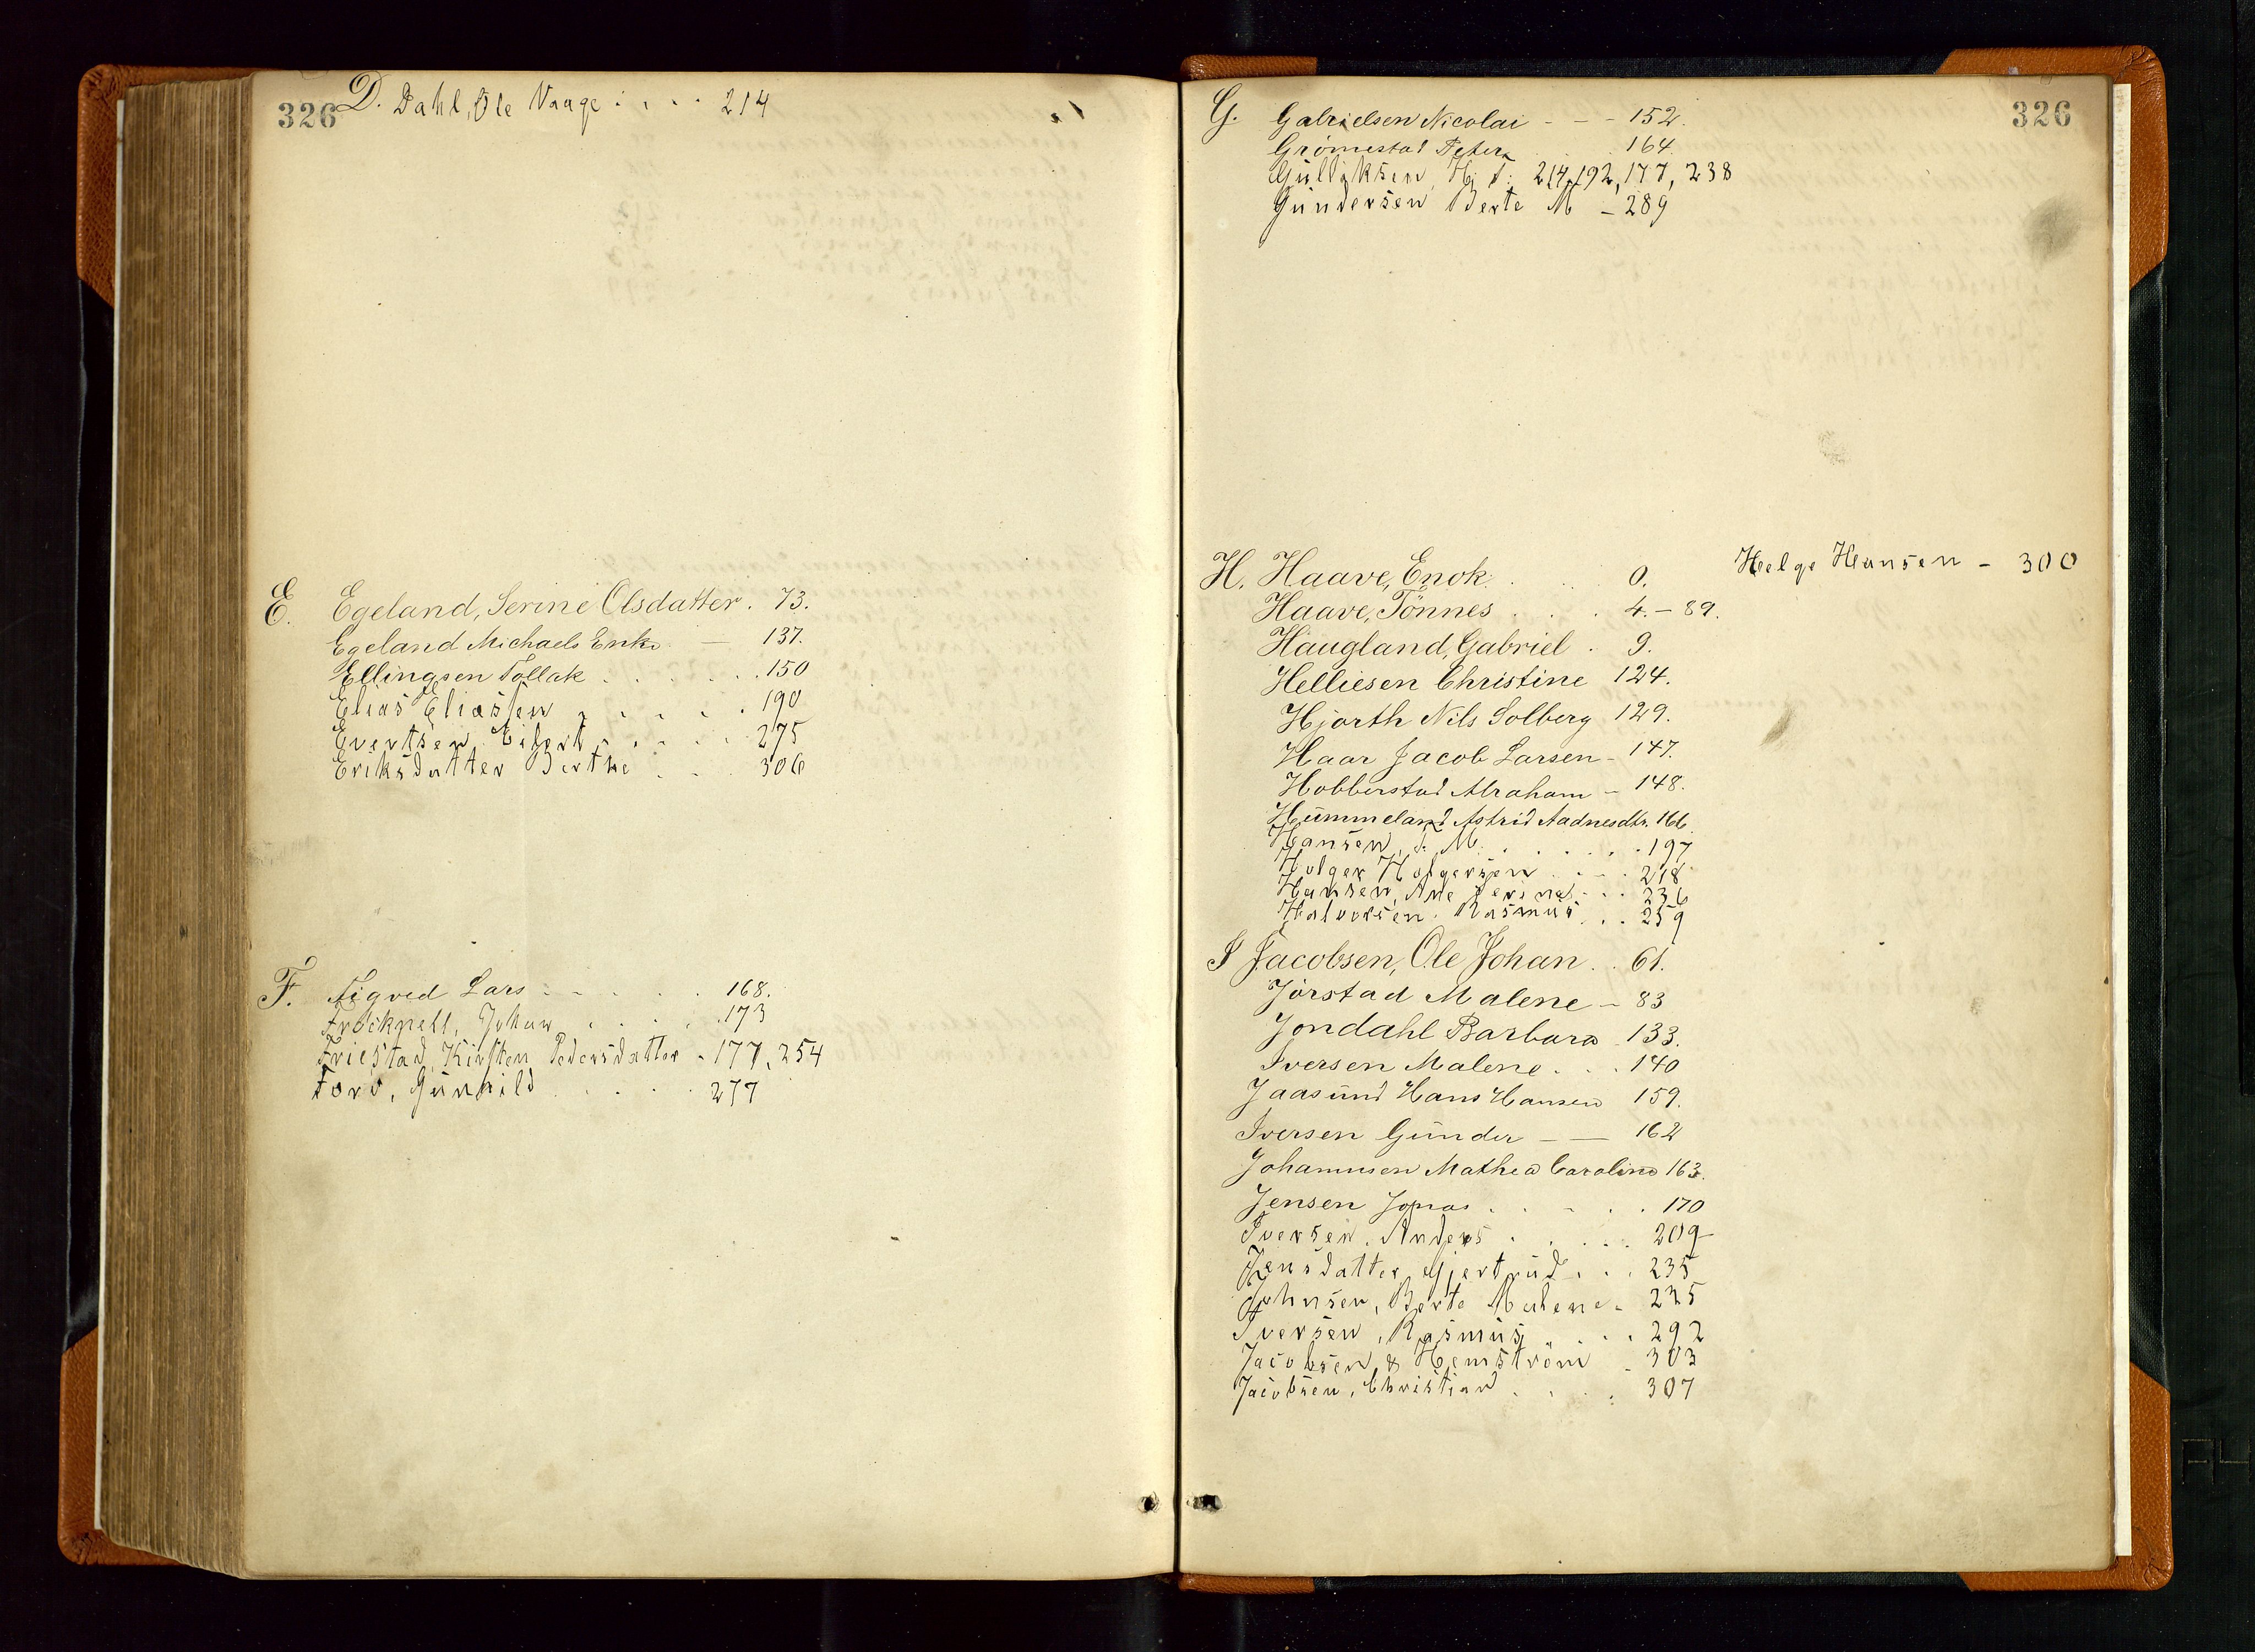 326
D. Dahl, Ole Vaage . . . . 214
E. Egeland, Serine Olsdatter. 73.
Egeland Michaels Enke — 137.
Ellingsen Tollak . . . . . . 150
Elias Eliassen . . . . . 190
Evertsen Eilert . . . . . 275
Eriksdatter Berthe . . . 306
F. Figved Lars - - - . . . 168.
Frøcknell, Johan . . . . . 173
Friestad, Kirsten Pedersdatter - 177, 254
Ford, Gunnild . . . . . 277
326
G. Gabrielsen Nicolai - - - 152.
Grömestad Peter 164.
Gülliksen, H. 214, 192, 177, 238
Gündersen Berte M - 289
H. Haave, Enok. . . . 0.
Helge Hansen - 300
Haave, Tönnes . . . . 4. - 89.
Haugland, Gabriel . 9.
Helliesen Christine 124.
Hjorth Nils Solberg 129.
Haar Jacob Larsen - 147.
Hobberstad Abraham - 148.
Hümmeland Astrid Aadnesdtr. 166.
Hansen, M. . . . . . . 197
Holger Holgersen . . . . 218
Hansen, Ane Serine . . . 236
Halvorsen. Rasmüs . . . 259
I Jacobsen, Ole Johan . . 61.
Jörstad Malene - 83
Jondahl Barbara 133.
Iversen Malene . . . 140
Jaasünd Hans Hansen 159.
Iversen Günder — — 162
Johannsen Mathea Caroline 163.
Jensen Jonas . . . . . . 170
Iversen, Anders . . . . . 209
Jensdatter, Gjertrüd . . . 235
Johnsen, Berte Malene -
Iversen, Rasmüs . . . . 292
Jacobsen & Hemström - 303
Jacobsen, Christian . . . . 307